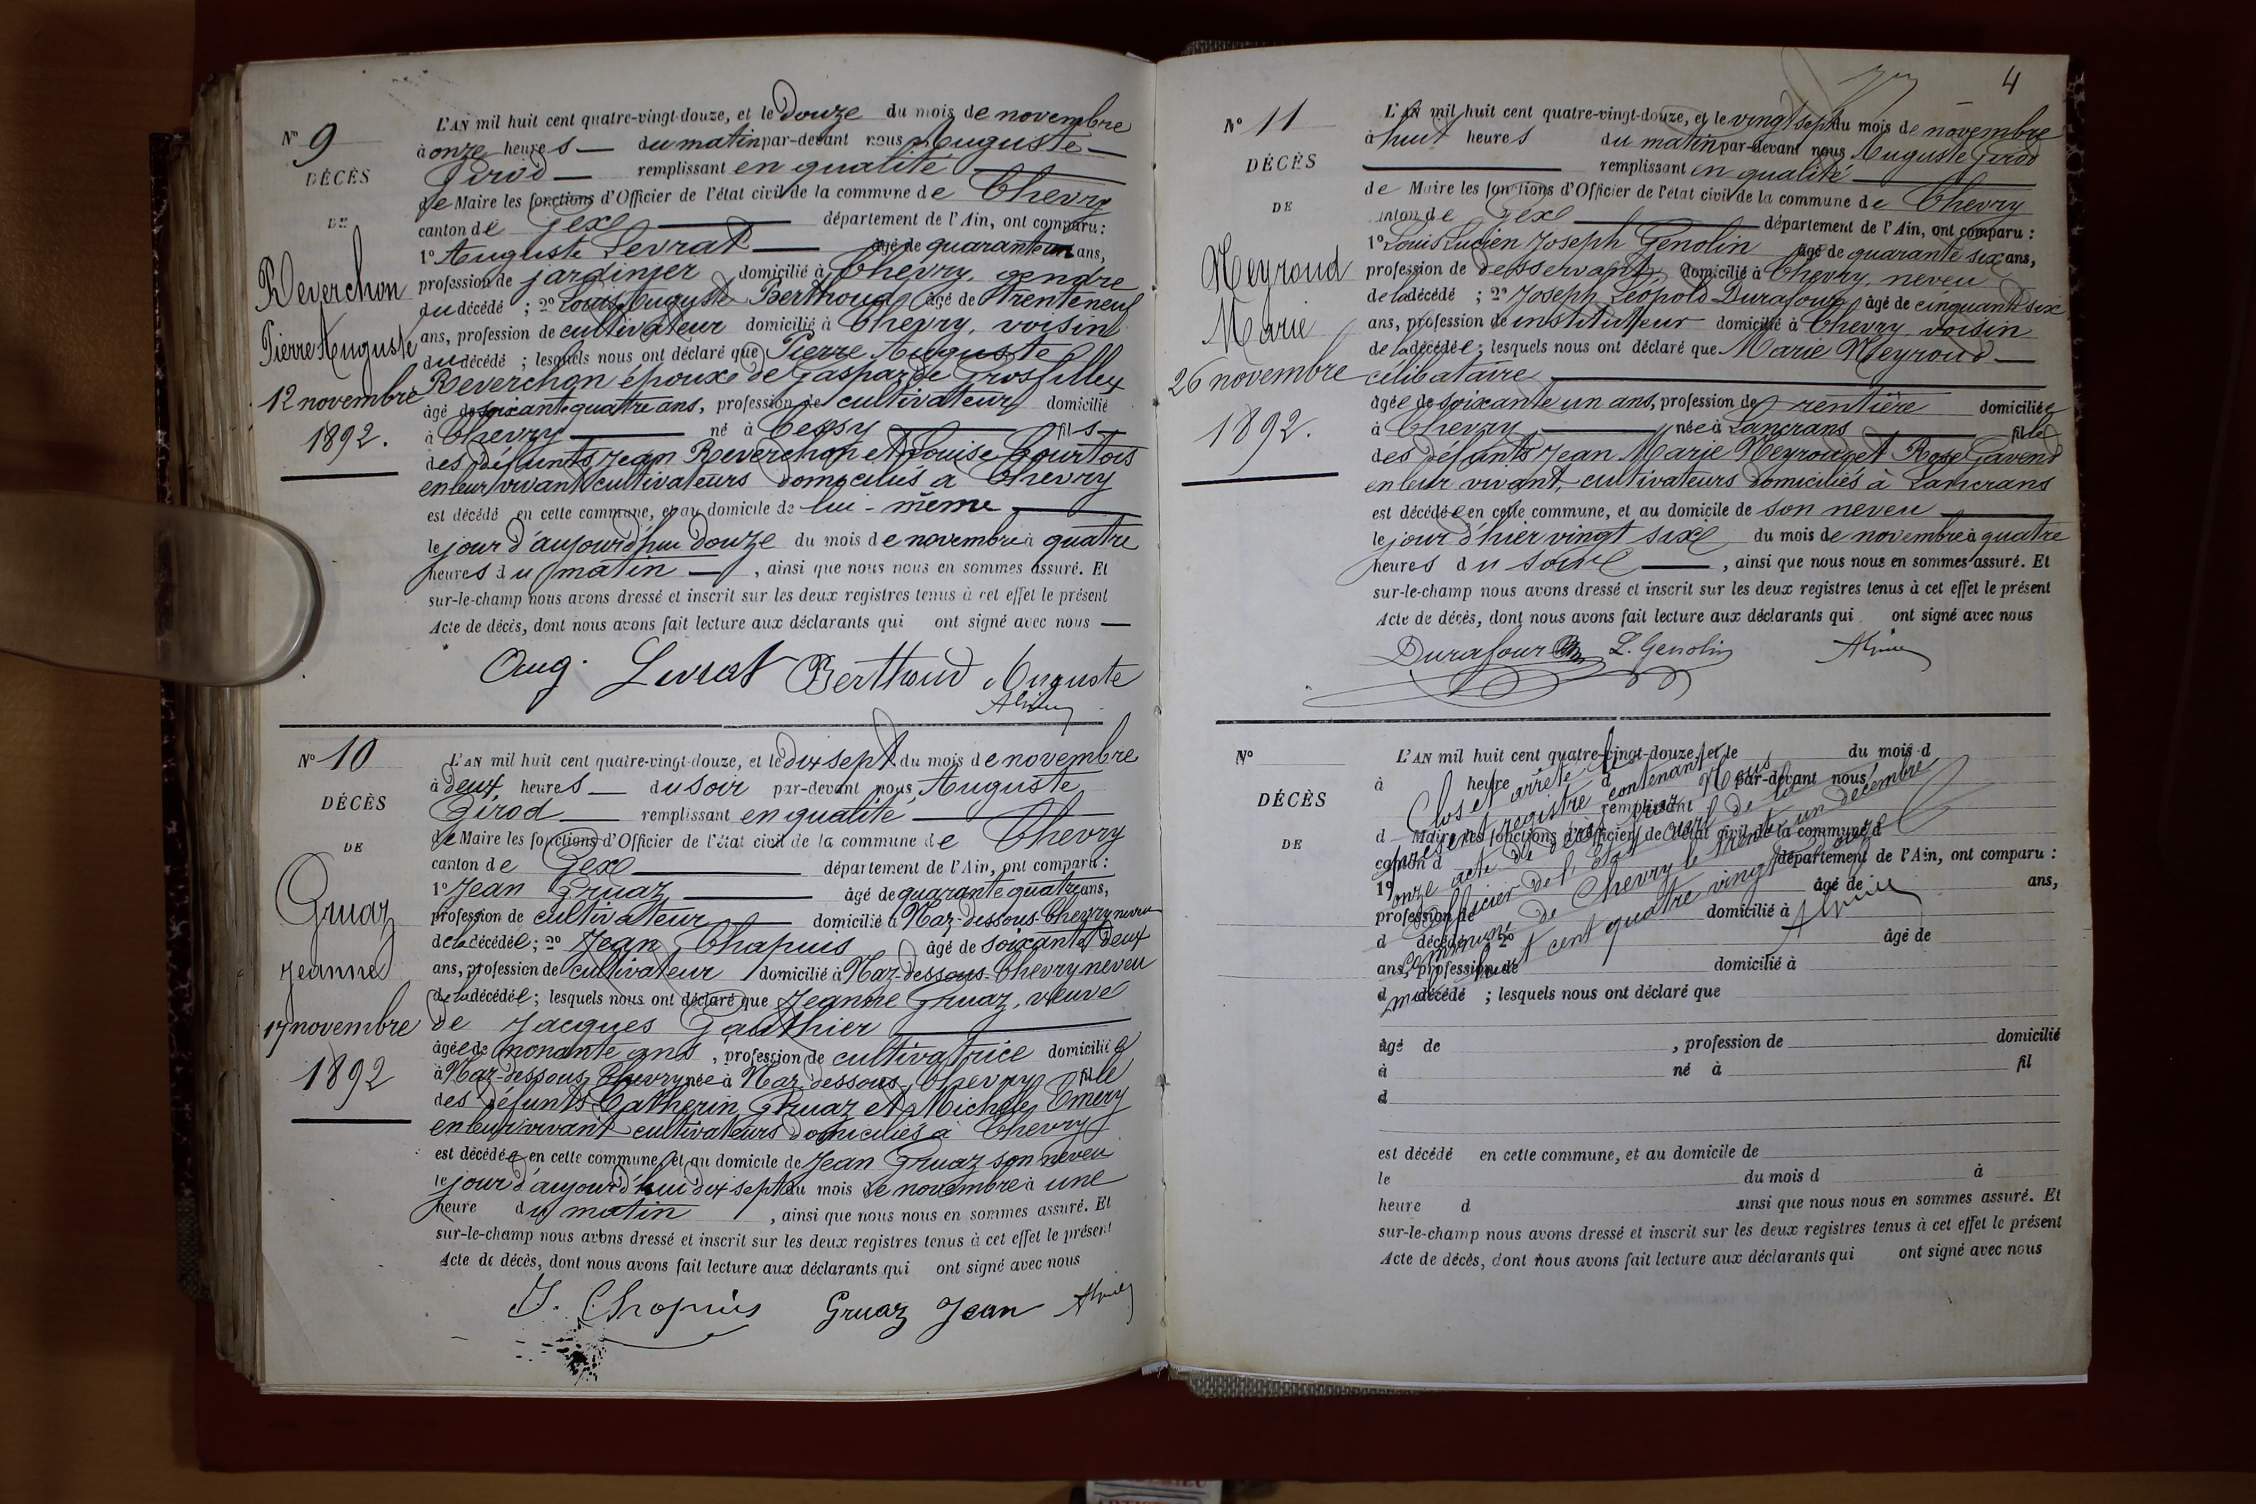 N° 9
DÉCÈS
DE
Reverchon
Pierre Auguste
12 novembre
1892.
L'AN mil huit cent quatre-vingt-douze, et le Douze du mois de novembre
à onze heures du matin par-devant nous Auguste
Girod remplissant en qualité
de Maire les fonctions d'Officier de l'état civil de la commune de Chevry
canton de Gex département de l'Ain, ont comparu :
1° Auguste Levrat âgé de quarante un ans,
profession de jardinier domicilié à Chevry, gendre
du décédé ; 2° Louis Auguste Berthoud âgé de Trente neuf
ans, profession de cultivateur domicilié à Chevry, voisin
du décédé ; lesquels nous ont déclaré que Pierre Auguste
Reverchon époux de Gasparde Grosfilley
âgé de soixante quatre ans, profession de cultivateur domicilié
à Chevry né à Cessy fils
des défunts Jean Reverchon et Louise Courtois
en leur vivant cultivateurs domiciliés à Chevry
est décédé en cette commune, et au domicile de lui-même
le jour d'aujourd'hui Douze du mois de novembre à quatre
heures du matin , ainsi que nous nous en sommes assuré. Et
sur-le-champ nous avons dressé et inscrit sur les deux registres tenus à cet effet le présent
Acte de décès, dont nous avons fait lecture aux déclarants qui ont signé avec nous
Aug. Levrat Berthoud Auguste
N° 10
DÉCÈS
DE
Gruaz
Jeanne
17 novembre
1892
L'AN mil huit cent quatre-vingt-douze, et le dix sept du mois de novembre
à deux heures du soir par-devant nous Auguste
Girod remplissant en qualité
de Maire les fonctions d'Officier de l'état civil de la commune de Chevry
canton de Gex département de l'Ain, ont comparu :
1° Jean Gruaz âgé de quarante quatre ans,
profession de cultivateur domicilié à Naz-dessous-Chevry neveu
de la décédée ; 2° Jean Chapuis âgé de soixante deux
ans, profession de cultivateur domicilié à Naz-dessous-Chevry neveu
de la décédée ; lesquels nous ont déclaré que Jeanne Gruaz, veuve
de Jacques Gauthier
âgée de nonante ans , profession de cultivatrice domiciliée
à Naz-dessous Chevry née à Naz-dessous-Chevry fille
des défunts Catherin Gruaz et Michele Emery
en leur vivant cultivateurs domiciliés à Chevry
est décédée en cette commune, et au domicile de Jean Gruaz son neveu
le jour d'aujourd'hui dix sept du mois de novembre à une
heure du matin , ainsi que nous nous en sommes assuré. Et
sur-le-champ nous avons dressé et inscrit sur les deux registres tenus à cet effet le présent
Acte de décès, dont nous avons fait lecture aux déclarants qui ont signé avec nous
J. Chapuis Gruaz Jean
4
N° 11
DÉCÈS
DE
Neyroud
Marie
26 novembre
1892.
L'AN mil huit cent quatre-vingt-douze, et le vingt sept du mois de novembre
à huit heures du matin par-devant nous Auguste Girod
remplissant en qualité
de Maire les fonctions d'Officier de l'état civil de la commune de Chevry
canton de Gex département de l'Ain, ont comparu :
1° Louis Lucien Joseph Genolin âgé de quarante six ans,
profession de desservant, domicilié à Chevry, neveu
de la décédé ; 2° Joseph Léopold Durafour âgé de cinquante six
ans, profession de instituteur domicilié à Chevry voisin
de la décédée ; lesquels nous ont déclaré que Marie Neyroud
célibataire
âgée de soixante un ans, profession de rentière domiciliée
à Chevry née à Lancrans fille
des défunts Jean Marie Neyroud et Rose Gavend
en leur vivant, cultivateurs domiciliés à Lancrans
est décédée en cette commune, et au domicile de son neveu
le jour d'hier vingt six du mois de novembre à quatre
heures du soir , ainsi que nous nous en sommes assuré. Et
sur-le-champ nous avons dressé et inscrit sur les deux registres tenus à cet effet le présent
Acte de décès, dont nous avons fait lecture aux déclarants qui ont signé avec nous
Durafour L. Genolin
N°
DÉCÈS
DE
L'AN mil huit cent quatre-vingt-douze, et le du mois d
à heure d par-devant nous
remplissant
d Maire les fonctions d'Officier de l'état civil de la commune d
canton d département de l'Ain, ont comparu :
1° âgé de ans,
profession de domicilié à
d décédé ; 2° âgé de
ans, profession de domicilié à
d décédé ; lesquels nous ont déclaré que
âgé de , profession de domicilié
à né à fil
d
est décédé en cette commune, et au domicile de
le du mois d à
heure d ainsi que nous nous en sommes assuré. Et
sur-le-champ nous avons dressé et inscrit sur les deux registres tenus à cet effet le présent
Acte de décès, dont nous avons fait lecture aux déclarants qui ont signé avec nous
Clos et arrêté le
présent registre contenant
onze acte de décès par Nous
officier de l'Etat civil de la
commune de Chevry le trente un décembre
mil huit cent quatre vingt douze